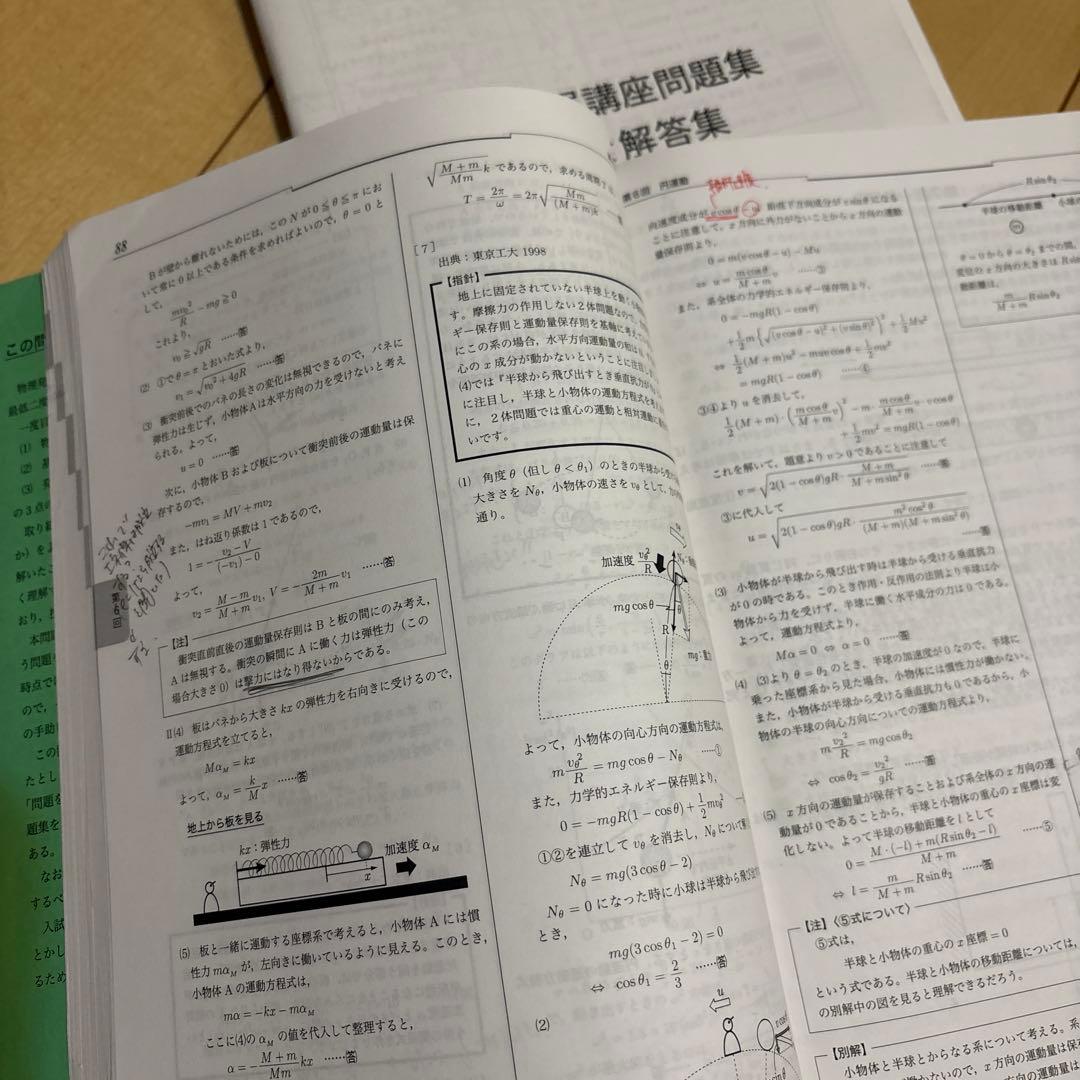 講座問題集
解答集
88
Bが壁から離れないためには，このNが0≦θ≦πにお
いて常に0以上である条件を求めればよいので，θ＝0と
して，
mv₀²/R − mg ≧ 0
これより，
v₀ ≧ √gR ……答
(2) ①でθ＝πとおいた式より，
v₁ = √(v₀² + 4gR) ……答
(3) 衝突前後でのバネの長さの変化は無視できるので，バネに
弾性力は生じず，小物体Aは水平方向の力を受けないと考え
られる。よって，
u = 0 ……答
次に，小物体Bおよび板について衝突前後の運動量は保
存するので，
−mv₁ = MV + mv₂
また，はね返り係数は1であるので，
1 = −(v₂ − V)/((−v₁) − 0)
よって，
v₂ = (M − m)/(M + m) v₁, V = −2m/(M + m) v₁ ……答
【注】
衝突直前直後の運動量保存則はBと板の間にのみ考え，
Aは無視する。衝突の瞬間にAに働く力は弾性力（この
場合大きさ0）は撃力にはなり得ないからである。
II(4) 板はバネから大きさkxの弾性力を右向きに受けるので，
運動方程式を立てると，
Mα_M = kx
よって，α_M = k/M x ……答
地上から板を見る
kx：弾性力
加速度 α_M
x
(5) 板と一緒に運動する座標系で考えると，小物体Aには慣
性力mα_Mが，左向きに働いているように見える。このとき，
小物体Aの運動方程式は，
mα = −kx − mα_M
ここに(4)のα_Mの値を代入して整理すると，
α = −(M + m)/(Mm) kx ……答
第6回
√((M + m)/(Mm) k) であるので，求める周期
T = 2π/ω = 2π√(Mm/((M + m)k))
[7]
出典：東京工大 1998
【指針】
地上に固定されていない半球上を動く
す。摩擦力の作用しない2体問題なので，
ギー保存則と運動量保存則を基軸に考えて
にこの系の場合，水平方向運動量の和は
心のx成分が動かないということに注目
(4)では『半球から飛び出すとき垂直抗力が
に注目し，半球と小物体の運動方程式を考
に，2体問題では重心の運動と相対運動に
いです。
(1) 角度θ（但しθ < θ₁）のときの半球から受
大きさをN_θ，小物体の速さをv_θとして，
通り。
加速度 v_θ²/R
N_θ
mg cosθ
θ
R
mg：重力
θ
よって，小物体の向心方向の運動方程式は，
m v_θ²/R = mg cosθ − N_θ ……①
また，力学的エネルギー保存則より，
0 = −mgR(1 − cosθ) + 1/2 mv_θ²
①②を連立してv_θを消去し，N_θについて
N_θ = mg(3cosθ − 2)
N_θ = 0になった時に小球は半球から飛び
とき，
mg(3cosθ₁ − 2) = 0
⇔ cosθ₁ = 2/3 ……答
(2)
u
円運動
向速度成分がv cosθ − u，鉛直下方向成分がv sinθになる
ことに注意して，x方向に外力がないことからx方向の運動
量保存則より，
0 = m(v cosθ − u) − Mu
⇔ u = m cosθ/(M + m) v ……③
また，系全体の力学的エネルギー保存則より，
0 = −mgR(1 − cosθ)
+ 1/2 m{√((v cosθ − u)² + (v sinθ)²)}² + 1/2 Mu²
⇔ 1/2 (M + m)u² − muv cosθ + 1/2 mv²
= mgR(1 − cosθ) ……④
③④よりuを消去して，
1/2 (M + m)·(m cosθ/(M + m) v)² − m·m cosθ/(M + m) v·v cosθ
+ 1/2 mv² = mgR(1 − cosθ)
これを解いて，題意よりv > 0であることに注意して
v = √(2(1 − cosθ)gR·(M + m)/(M + m sin²θ)) ……答
③に代入して
u = √(2(1 − cosθ)gR·m² cos²θ/((M + m)(M + m sin²θ)))
……答
(3) 小物体が半球から飛び出す時は半球から受ける垂直抗力
が0の時である。このとき作用・反作用の法則より半球は小
物体から力を受けず，半球に働く水平成分の力は0である。
よって，運動方程式より，
Mα = 0 ⇔ α = 0 ……答
(4) (3)よりθ = θ₂のとき，半球の加速度が0なので，半球に
乗った座標系から見た場合，小物体には慣性力が働かない。
また，小物体が半球から受ける垂直抗力も0であるから，小
物体の半球の向心方向についての運動方程式より，
m v₂²/R = mg cosθ₂
⇔ cosθ₂ = v₂²/gR ……答
(5) x方向の運動量が保存することおよび系全体のx方向の運
動量が0であることから，半球と小物体の重心のx座標は変
化しない。よって半球の移動距離をlとして
0 = (M·(−l) + m(R sinθ₂ − l))/(M + m) ……⑤
⇔ l = m/(M + m) R sinθ₂ ……答
【注】〈⑤式について〉
⑤式は，
半球と小物体の重心のx座標 = 0
という式である。半球と小物体の移動距離については，
の別解中の図を見ると理解できるだろう。
【別解】
小物体と半球とからなる系について考える。系
R sinθ₂
半球の移動距離
小球の
θ = 0からθ = θ₂までの間，
変位のx方向の大きさはR sin
動距離は，
m/(M + m) R sinθ₂
この問
物理
最低二度
一度目
(1)
(2)
(3)
の3点の
取り組
か）を
解いたこ
く理解
おり，
本問題
う問題を
時点で
ので，
の手助
この
たとし
「問題を
題集を
ある。
なお
するべ
入試
とかし
るため